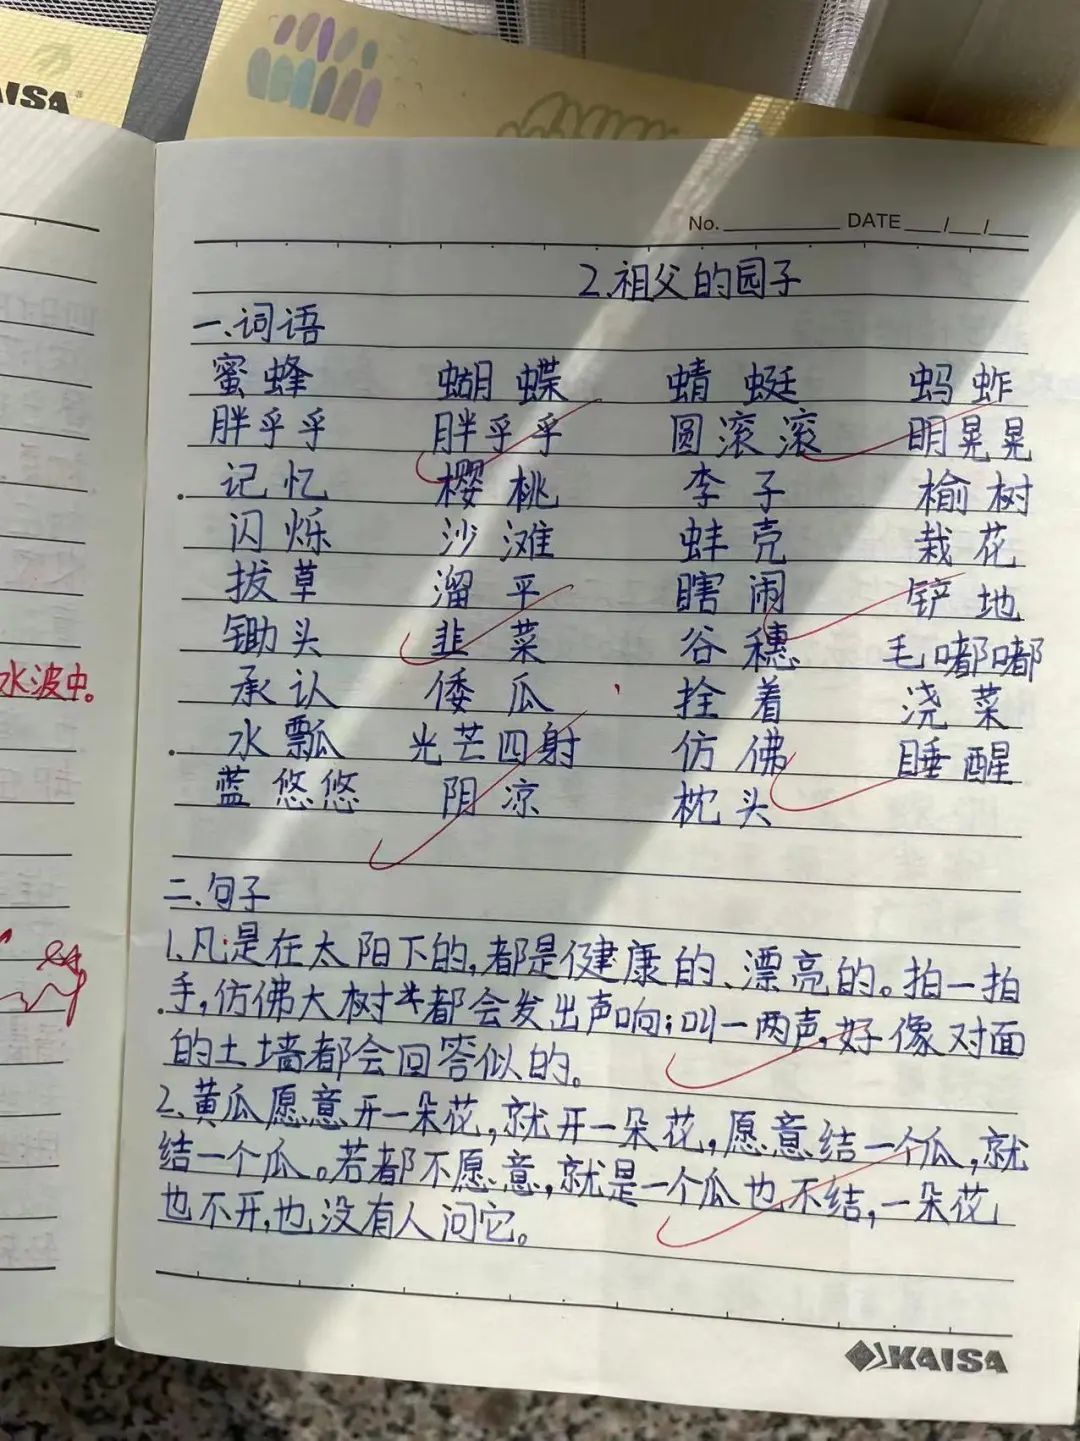 AISA
No. DATE / /
2.祖父的园子
一.词语
蜜蜂 蝴蝶 蜻蜓 蚂蚱
胖乎乎 胖乎乎 圆滚滚 明晃晃
记忆 樱桃 李子 榆树
闪烁 沙滩 蚌壳 栽花
拔草 溜平 瞎闹 铲地
锄头 韭菜 谷穗 毛嘟嘟
承认 倭瓜 拴着 浇菜
水瓢 光芒四射 仿佛 睡醒
蓝悠悠 阴凉 枕头
水波中。
二.句子
1.凡是在太阳下的,都是健康的、漂亮的。拍一拍
手,仿佛大树都会发出声响;叫一两声,好像对面
的土墙都会回答似的。
2.黄瓜愿意开一朵花,就开一朵花,愿意结一个瓜,就
结一个瓜。若都不愿意,就是一个瓜也不结,一朵花
也不开,也没有人问它。
KAISA